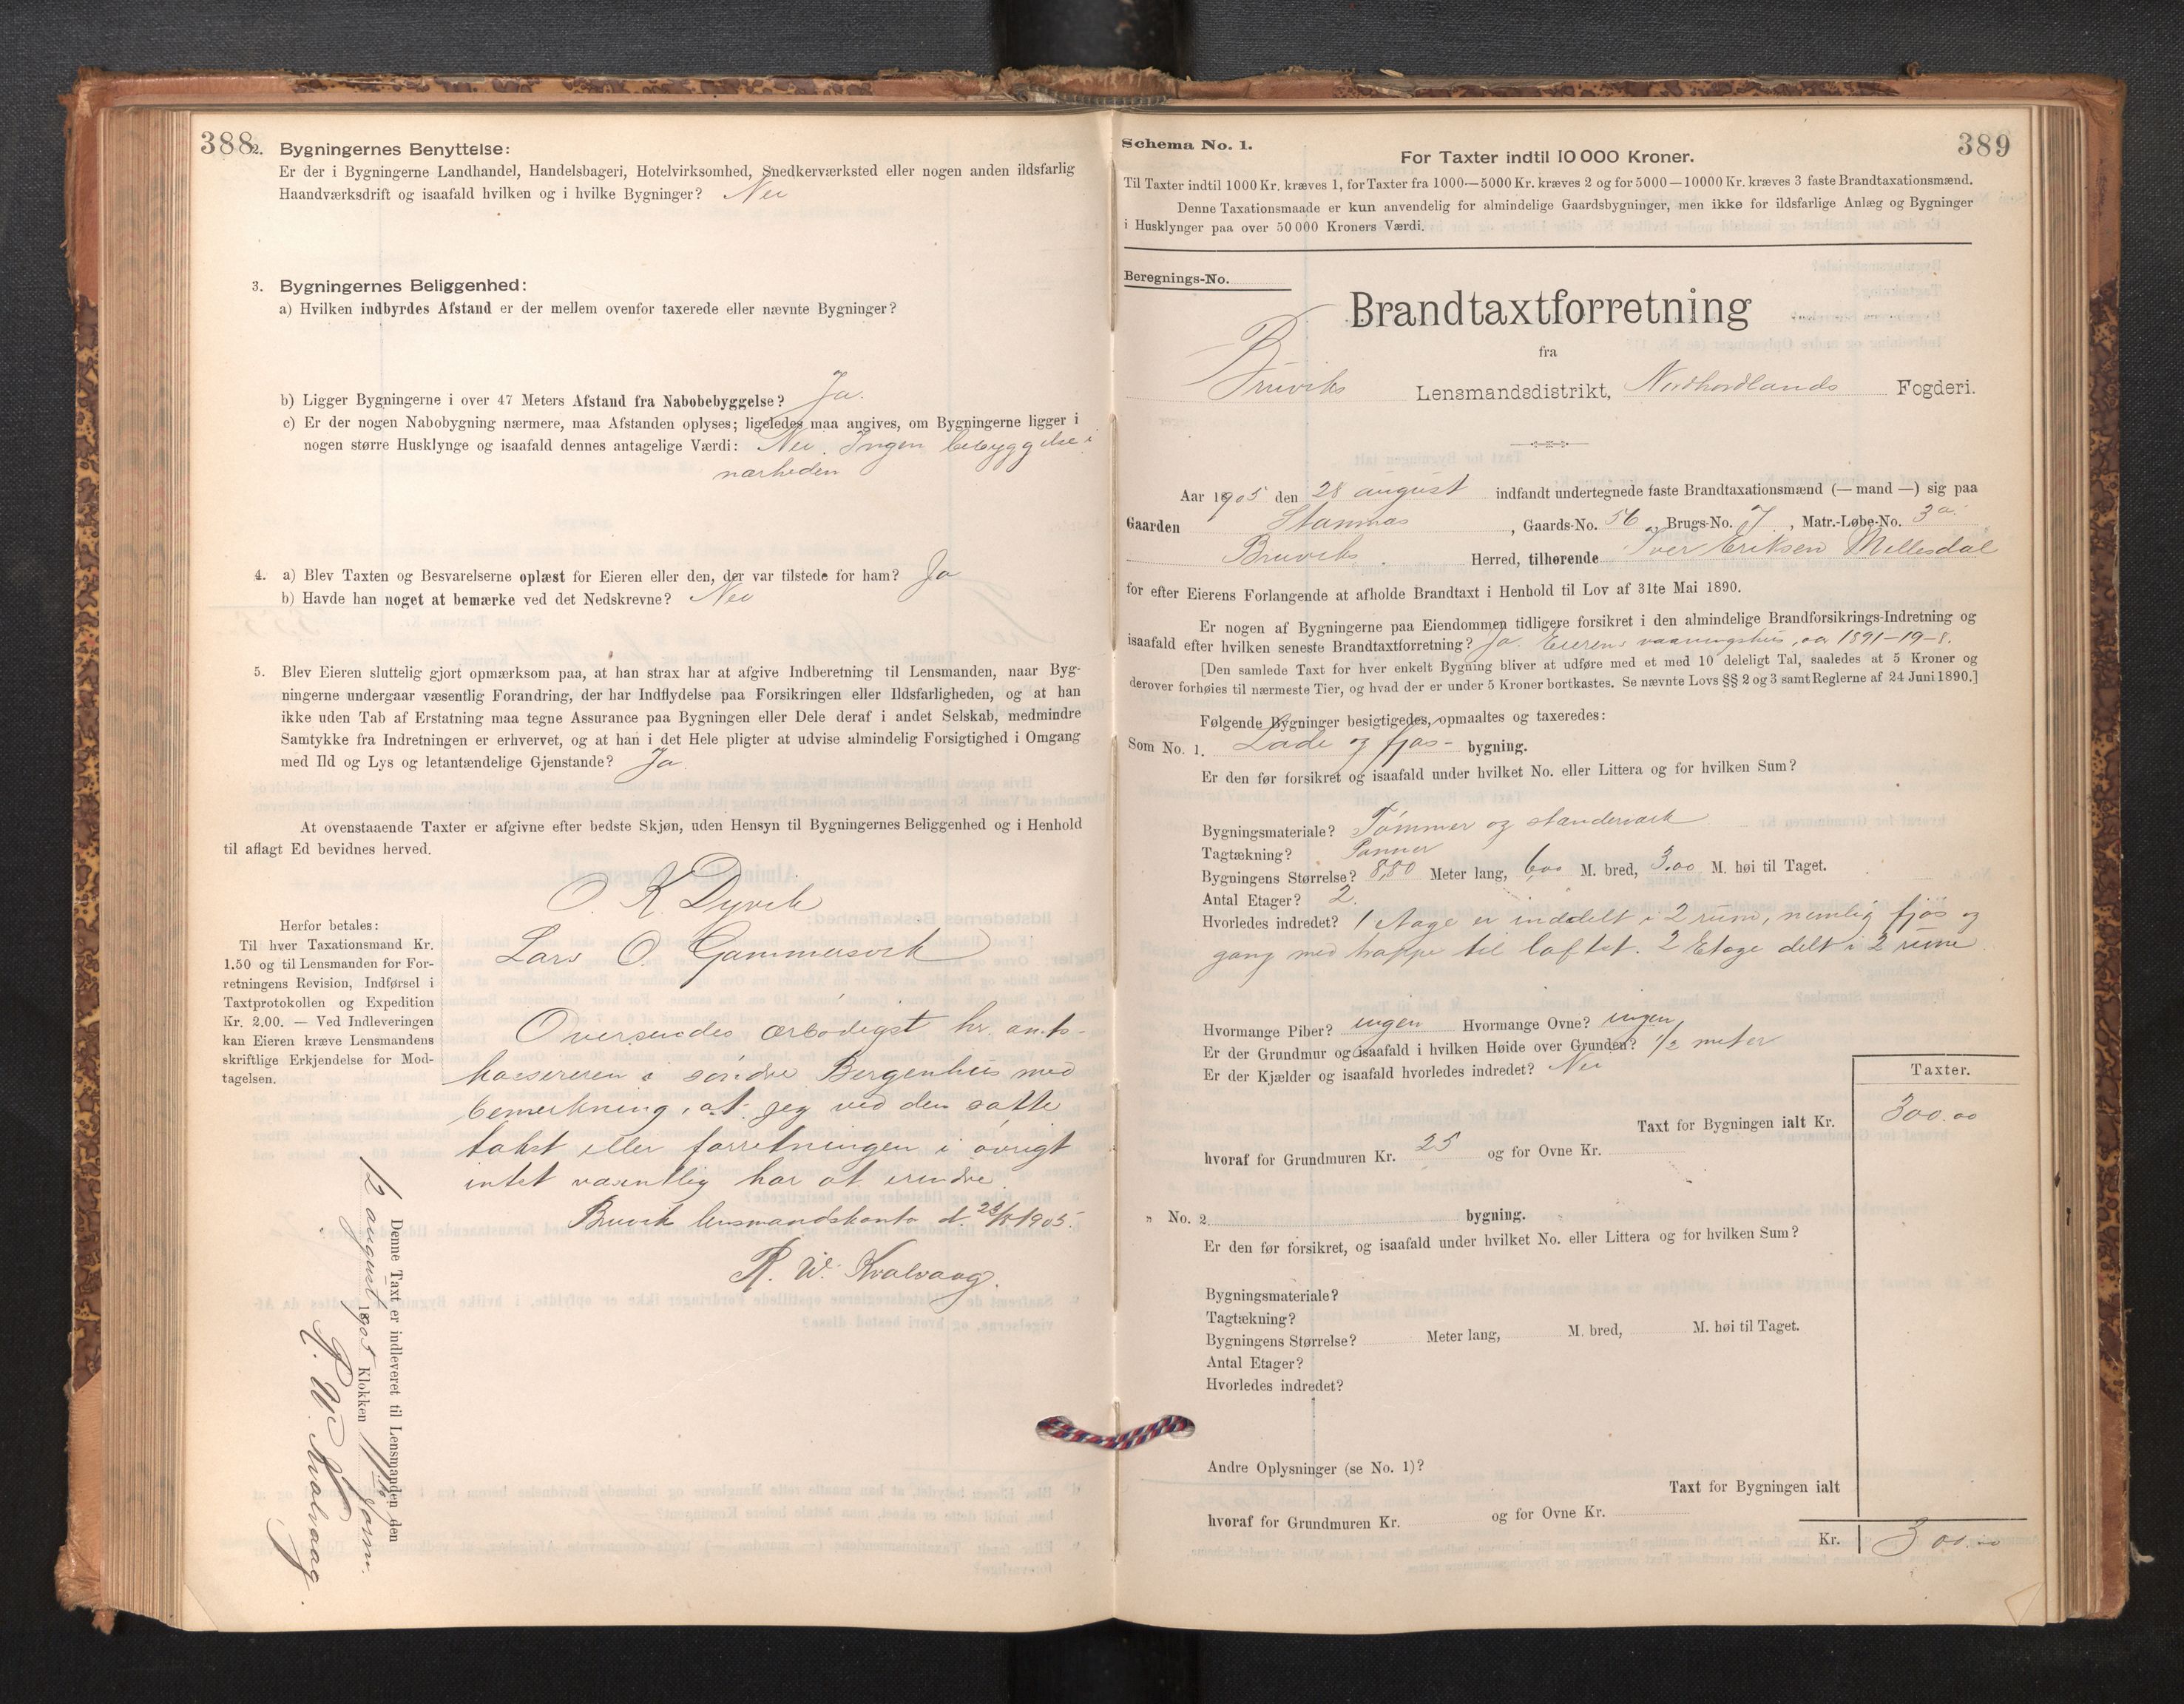 388
2. Bygningernes Benyttelse:
Er der i Bygningerne Landhandel, Handelsbageri, Hotelvirksomhed, Snedkerværksted eller nogen anden ildsfarlig
Haandværksdrift og isaafald hvilken og i hvilke Bygninger? Nei
3. Bygningernes Beliggenhed:
a) Hvilken indbyrdes Afstand er der mellem ovenfor taxerede eller nævnte Bygninger?
b) Ligger Bygningerne i over 47 Meters Afstand fra Nabobebyggelse? Ja.
c) Er der nogen Nabobygning nærmere, maa Afstanden oplyses; ligeledes maa angives, om Bygningerne ligger i
nogen større Husklynge og isaafald dennes antagelige Værdi: Nei. Ingen bebyggelse i
nærheden
4. a) Blev Taxten og Besvarelserne oplæst for Eieren eller den, der var tilstede for ham? Ja
b) Havde han noget at bemærke ved det Nedskrevne? Nei
5. Blev Eieren sluttelig gjort opmærksom paa, at han strax har at afgive Indberetning til Lensmanden, naar Byg-
ningerne undergaar væsentlig Forandring, der har Indflydelse paa Forsikringen eller Ildsfarligheden, og at han
ikke uden Tab af Erstatning maa tegne Assurance paa Bygningen eller Dele deraf i andet Selskab, medmindre
Samtykke fra Indretningen er erhvervet, og at han i det Hele pligter at udvise almindelig Forsigtighed i Omgang
med Ild og Lys og letantændelige Gjenstande? Ja.
At ovenstaaende Taxter er afgivne efter bedste Skjøn, uden Hensyn til Bygningernes Beliggenhed og i Henhold
til aflagt Ed bevidnes herved.
O. K. Dyvik
Lars O. Gammersvik
Herfor betales:
Til hver Taxationsmand Kr.
1.50 og til Lensmanden for For-
retningens Revision, Indførsel i
Taxtprotokollen og Expedition
Kr. 2.00. — Ved Indleveringen
kan Eieren kræve Lensmandens
skriftlige Erkjendelse for Mod-
tagelsen.
Oversendes ærbødigst hr. amts-
kassereren i søndre Bergenhus med
bemerkning, at jeg ved den satte
takst eller forretningen i øvrigt
intet væsentlig har at erindre.
Bruvik lensmandskontor d. 1905.
R. W. Kvalvaag.
Denne Taxt er indleveret til Lensmanden den
august 1905 Klokken form.
R. W. Kvalvaag
389
Schema No. 1.
For Taxter indtil 10 000 Kroner.
Til Taxter indtil 1000 Kr. kræves 1, for Taxter fra 1000—5000 Kr. kræves 2 og for 5000—10000 Kr. kræves 3 faste Brandtaxationsmænd.
Denne Taxationsmaade er kun anvendelig for almindelige Gaardsbygninger, men ikke for ildsfarlige Anlæg og Bygninger
i Husklynger paa over 50 000 Kroners Værdi.
Beregnings-No.
Brandtaxtforretning
fra
Bruviks Lensmandsdistrikt, Nordhordlands Fogderi.
Aar 1905 den 28 august indfandt undertegnede faste Brandtaxationsmænd (— mand —) sig paa
Gaarden Stamnæs, Gaards-No. 56 og Brugs-No. 7, Matr.-Løbe-No. 3a.
Bruviks Herred, tilhørende Iver Eriksen Mellesdal
for efter Eierens Forlangende at afholde Brandtaxt i Henhold til Lov af 31te Mai 1890.
Er nogen af Bygningerne paa Eiendommen tidligere forsikret i den almindelige Brandforsikrings-Indretning og
isaafald efter hvilken seneste Brandtaxtforretning? Ja. Eierens vaaningshus, aar 1891-19-8.
[Den samlede Taxt for hver enkelt Bygning bliver at udføre med et med 10 deleligt Tal, saaledes at 5 Kroner og
derover forhøies til nærmeste Tier, og hvad der er under 5 Kroner bortkastes. Se nævnte Lovs §§ 2 og 3 samt Reglerne af 24 Juni 1890.]
Følgende Bygninger besigtigedes, opmaaltes og taxeredes:
Som No. 1. Lade og fjøs- bygning.
Er den før forsikret og isaafald under hvilket No. eller Littera og for hvilken Sum?
Bygningsmateriale? Tømmer og standerværk
Tagtækning? Panner
Bygningens Størrelse? 8,80 Meter lang, 6,00 M. bred, 3.00 M. høi til Taget.
Antal Etager? 2.
Hvorledes indredet? 1 etage er inddelt i 2 rum, nemlig fjøs og
gang med trappe til loftet. 2 Etage delt i 2 rum
Hvormange Piber? ingen Hvormange Ovne? ingen
Er der Grundmur og isaafald i hvilken Høide over Grunden? 1/2 meter
Er der Kjælder og isaafald hvorledes indredet? Nei
Taxter.
Taxt for Bygningen ialt Kr. 300.00
hvoraf for Grundmuren Kr. 25 og for Ovne Kr.
" No. 2 bygning.
Er den før forsikret, og isaafald under hvilket No. eller Littera og for hvilken Sum?
Bygningsmateriale?
Tagtækning?
Bygningens Størrelse? Meter lang, M. bred, M. høi til Taget.
Antal Etager?
Hvorledes indredet?
Andre Oplysninger (se No. 1)?
Taxt for Bygningen ialt
hvoraf for Grundmuren Kr. og for Ovne Kr.
Kr. 300.00